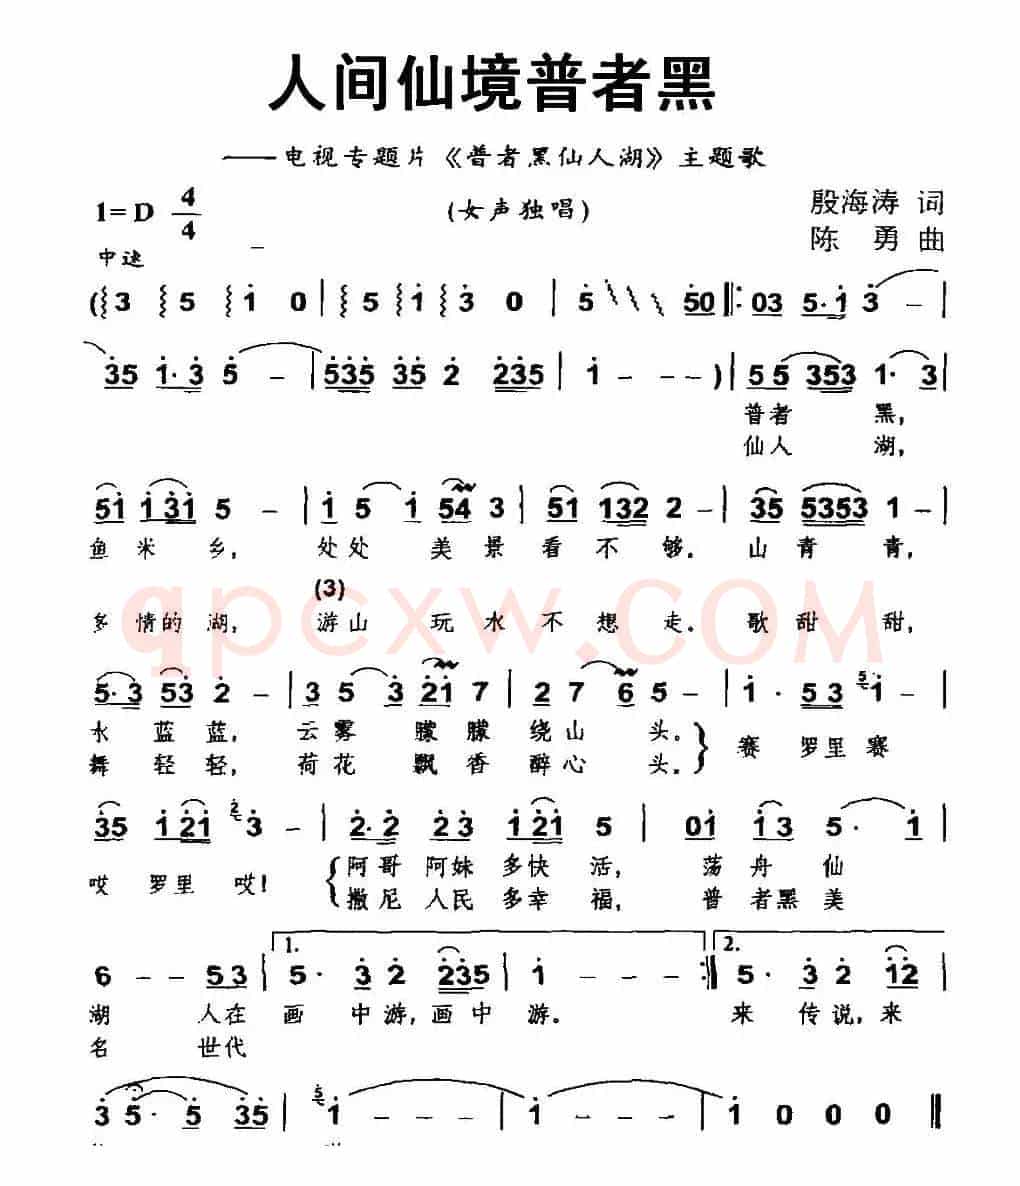 人间仙境普者黑
——电视专题片《普者黑仙人湖》主题歌
1=D 4/4 (女声独唱) 殷海涛 词
陈 勇 曲
中速
(3 5 1 0 | 5 1 3 0 | 5 50 ‖: 03 5·1 3 – |
35 1·3 5 – | 535 35 2 235 | 1 – – –) | 55 353 1· 3 |
普者 黑,
仙人 湖,
51 131 5 – | 1 5 1 54 3 | 51 132 2 – | 35 5353 1 – |
鱼 米 乡, 处处 美 景 看 不 够. 山 青 青,
(3)
多 情的 湖, 游山 玩 水 不 想 走. 歌 甜 甜,
5·3 53 2 – | 3 5 3 21 7 | 2 7 6 5 – | 1· 53 5 1 – |
水 蓝 蓝, 云 雾 朦 朦 绕 山 头. 赛 罗里 赛
舞 轻 轻, 荷 花 飘 香 醉 心 头.
35 121 2 3 – | 2·2 23 121 5 | 01 13 5· 1 |
哎 罗里 哎! 阿哥 阿妹 多快 活, 荡 舟 仙
撒尼 人民 多幸 福, 普 者黑 美
6 – – 53 | 1. 5· 3 2 235 | 1 – – – :‖ 2. 5· 3 2 12 |
湖 人在 画 中游, 画 中 游. 来 传说, 来
名 世代
3 5· 5 35 | 5 1 – – – | 1 – – – | 1 0 0 0 ‖
qpcxw.COM